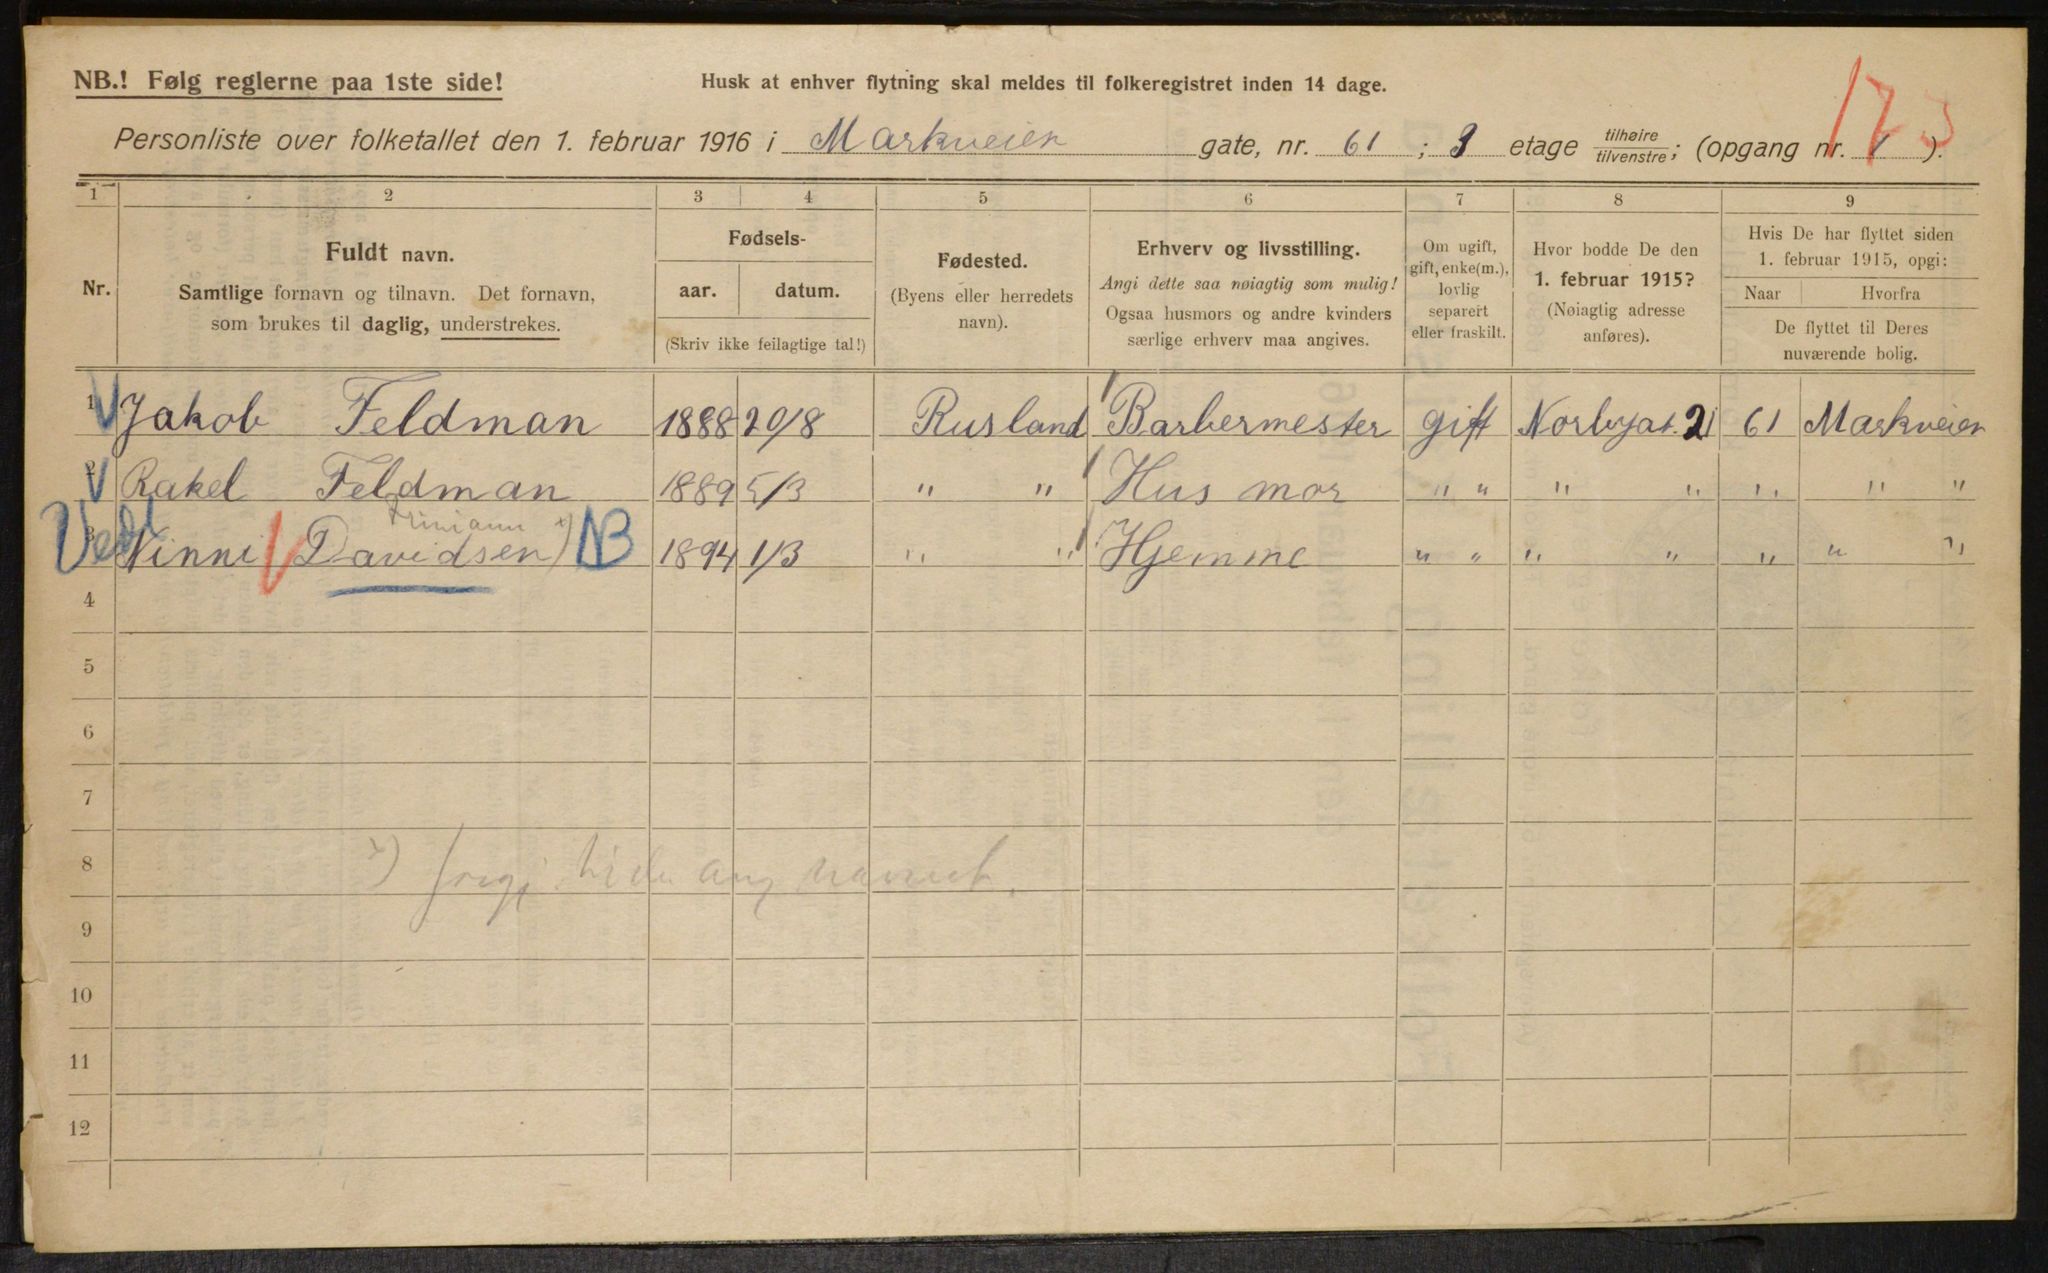 NB.! Følg reglerne paa 1ste side!
Husk at enhver flytning skal meldes til folkeregistret inden 14 dage.
173
Personliste over folketallet den 1. februar 1916 i Markveien gate, nr. 61 ; 3 etage tilhøire/tilvenstre; (opgang nr. 1 ).
1 2 3 4 5 6 7 8 9
Nr.
Fuldt navn.
Samtlige fornavn og tilnavn. Det fornavn,
som brukes til daglig, understrekes.
Fødsels-
aar. datum.
(Skriv ikke feilagtige tal!)
Fødested.
(Byens eller herredets
navn).
Erhverv og livsstilling.
Angi dette saa nøiagtig som mulig!
Ogsaa husmors og andre kvinders
særlige erhverv maa angives.
Om ugift,
gift, enke(m.),
lovlig
separert
eller fraskilt.
Hvor bodde De den
1. februar 1915?
(Nøiagtig adresse
anføres).
Hvis De har flyttet siden
1. februar 1915, opgi:
Naar Hvorfra
De flyttet til Deres
nuværende bolig.
1 Jakob Feldman 1888 20/8 Rusland Barbermester gift Norbygat. 21 61 Markveien
2 Rakel Feldman 1889 5/3 " " Hus mor " " " " " " "
3 Ninni Davidsen x) NB 1894 1/3 " " Hjemme " " " " " " "
4
5
6
7
8 x)
9
10
11
12